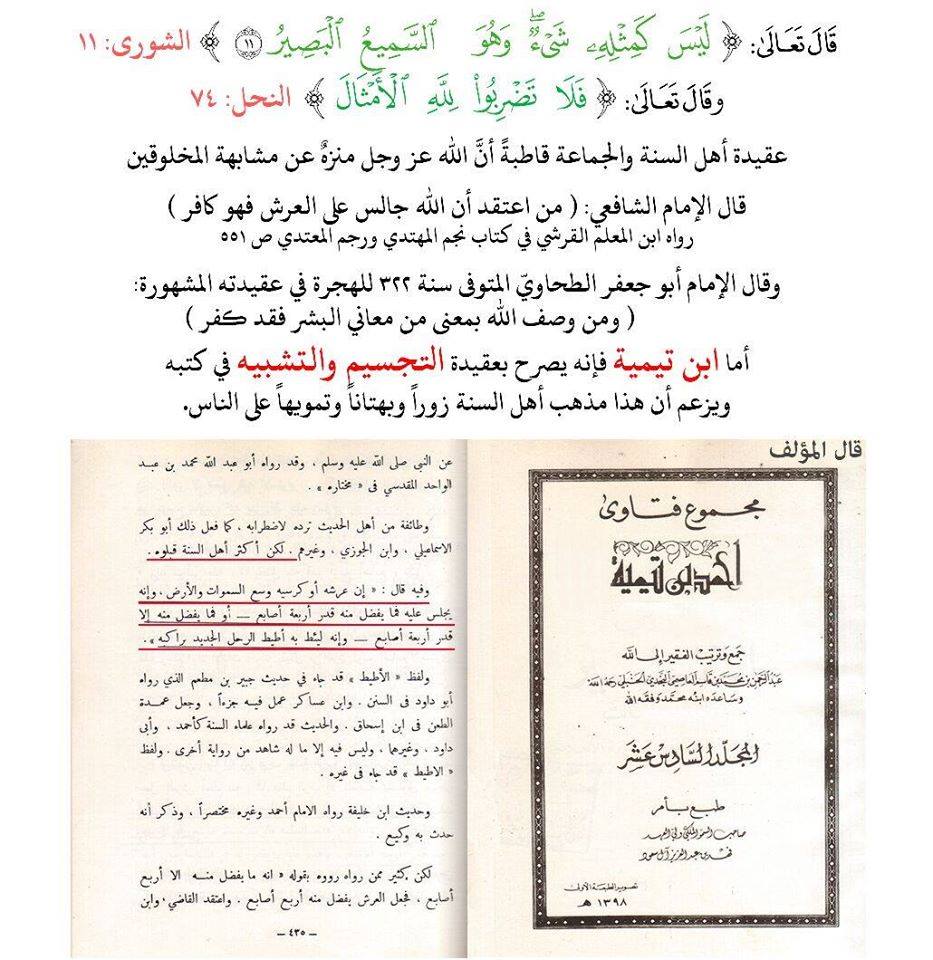 قَالَ تَعَالَىٰ: ﴿ لَيْسَ كَمِثْلِهِۦ شَىْءٌ ۖ وَهُوَ ٱلسَّمِيعُ ٱلْبَصِيرُ ۝١١ ﴾ الشورى: ١١
وَقَالَ تَعَالَىٰ: ﴿ فَلَا تَضْرِبُوا۟ لِلَّهِ ٱلْأَمْثَالَ ﴾ النحل: ٧٤
عقيدة أهل السنة والجماعة قاطبةً أنَّ الله عز وجل منزهٌ عن مشابهة المخلوقين
قال الإمام الشافعي: ( من اعتقد أن الله جالس على العرش فهو كافر )
رواه ابن المعلم القرشي في كتاب نجم المهتدي ورجم المعتدي ص ٥٥١
وقال الإمام أبو جعفر الطحاويّ المتوفى سنة ٣٢٢ للهجرة في عقيدته المشهورة:
( ومن وصف الله بمعنى من معاني البشر فقد كفر )
أما ابن تيمية فإنه يصرح بعقيدة التجسيم والتشبيه في كتبه
ويزعم أن هذا مذهب أهل السنة زوراً وبهتاناً وتمويهاً على الناس.
قال المؤلف
مجموع فتاوى
أحمد بن تيمية
جمع وترتيب الفقير إلى الله
عبد الرحمن بن محمد بن قاسم العاصمي النجدي الحنبلي رحمه الله
وساعده ابنه محمد وفقه الله
المجلد السادس عشر
طبع بأمر
صاحب السمو الملكي ولي العهد
فهد بن عبد العزيز آل سعود
تصوير الطبعة الأولى
١٣٩٨ هـ
عن النبي صلى الله عليه وسلم ، وقد رواه أبو عبد الله محمد بن عبد
الواحد المقدسي فى « مختاره » .
وطائفة من أهل الحديث ترده لاضطرابه ، كما فعل ذلك أبو بكر
الاسماعيلي ، وابن الجوزي ، وغيرهم . لكن أكثر أهل السنة قبلوه .
وفيه قال : « إن عرشه أو كرسيه وسع السموات والأرض ، وإنه
يجلس عليه فما يفضل منه قدر أربعة أصابع — أو فما يفضل منه إلا
قدر أربعة أصابع — وإنه ليئط به أطيط الرحل الجديد براكبه » .
ولفظ « الأطيط » قد جاء في حديث جبير بن مطعم الذي رواه
أبو داود فى السنن . وابن عساكر عمل فيه جزءاً ، وجعل عمدة
الطعن فى ابن إسحاق . والحديث قد رواه علماء السنة كأحمد ، وأبى
داود ، وغيرهما ، وليس فيه إلا ما له شاهد من رواية أخرى . ولفظ
« الاطيط » قد جاء فى غيره .
وحديث ابن خليفة رواه الامام أحمد وغيره مختصراً ، وذكر أنه
حدث به وكيع .
لكن كثير ممن رواه رووه بقوله « انه ما يفضل منه الا أربع
أصابع ، فجعل العرش يفضل منه أربع أصابع . واعتقد القاضي ، وابن
— ٤٣٥ —